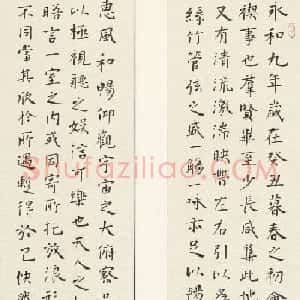 永和九年歲在癸丑暮春之初會
禊事也羣賢畢至少長咸集此地
又有清流激湍映帶左右引以
絲竹管弦之盛一觴一咏亦足以暢
惠風和暢仰觀宇宙之大俯察品
以極視聽之娛信可樂也夫人之
晤言一室之內或因寄所託放浪形
不同當其欣於所遇暫得於己快然